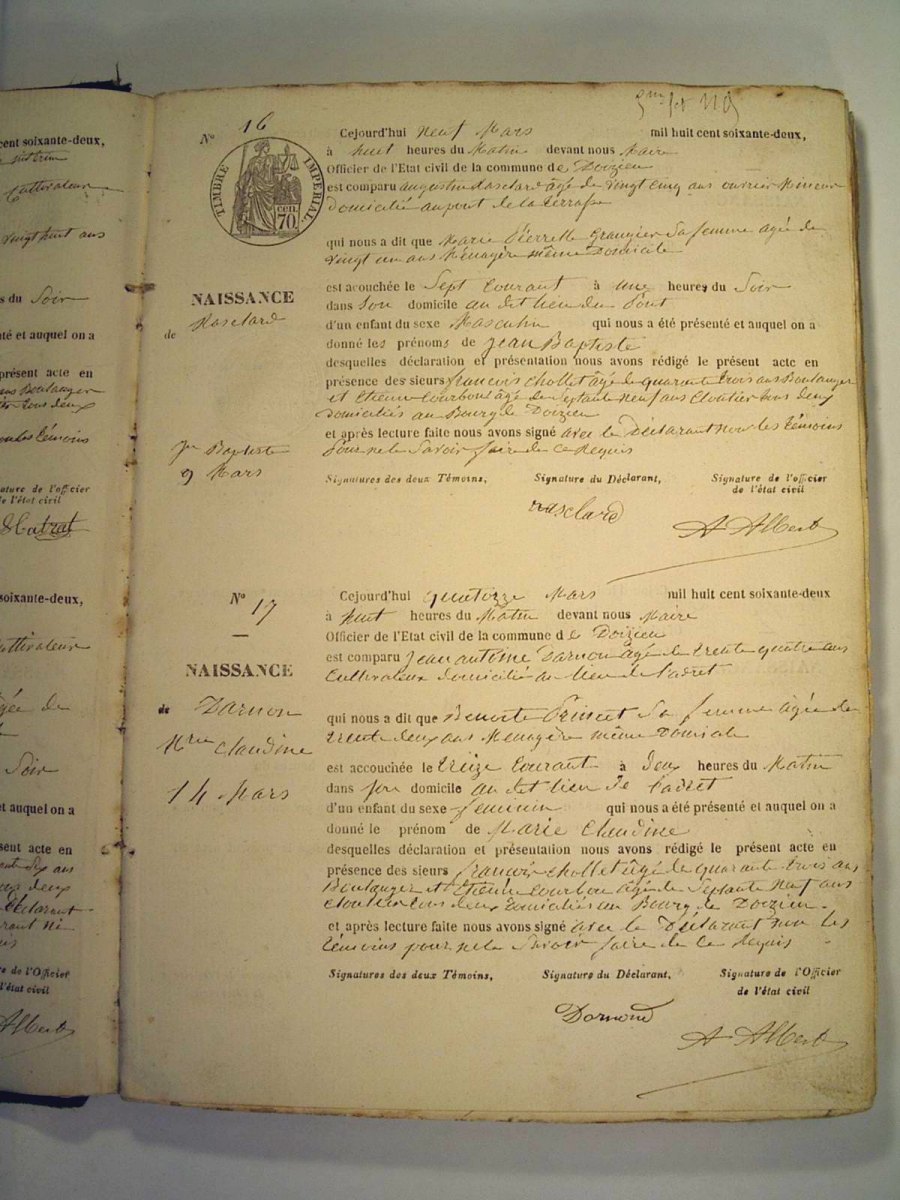 cent soixante-deux,
Cultivateur
vingt huit ans
s du Soir
té et auquel on a
présent acte en
ature de l'officier
de l'état civil
soixante-deux,
Cultivateur
Soir
et auquel on a
sent acte en
e de l'Officier
l'état civil
A Albert
No 16
TIMBRE IMPÉRIAL
70 cen.
NAISSANCE
de
Jn Baptiste
9 Mars
Cejourd'hui neuf Mars mil huit cent soixante-deux,
à huit heures du Matin devant nous Maire
Officier de l'Etat civil de la commune de Doizieu
est comparu augustin âgé de vingt cinq ans ouvrier Mineur
Domicilié au pont de la terrasse
qui nous a dit que Marie Pierrette Grangier Sa femme agé de
vingt un ans Ménagère même Domicile
est acouchée le Sept Courant à une heures du Soir
dans Son domicile au dit lieu du Pont
d'un enfant du sexe Masculin qui nous a été présenté et auquel on a
donné les prénoms de Jean Baptiste
desquelles déclaration et présentation nous avons rédigé le présent acte en
présence des sieurs francois Chollet âgé de quarante trois ans Boulanger
et Etienne Courbon âgé de Septante Neuf ans Cloutier tous deux
Domiciliés au Bourg de Doizieu
et après lecture faite nous avons signé avec le Déclarant non les témoins
pour ne le Savoir faire de ce Requis
Signatures des deux Témoins, Signature du Déclarant, Signature de l'officier
de l'état civil
A Albert
No 17
NAISSANCE
de Darnon
Mrie Claudine
14 Mars
Cejourd'hui quatorze Mars mil huit cent soixante-deux
à huit heures du Matin devant nous Maire
Officier de l'Etat civil de la commune de Doizieu
est comparu Jean antoine Darnon âgé de trente quatre ans
Cultivateur domicilié au lieu de
qui nous a dit que Benoite Sa femme âgée de
trente deux ans Menagère même Domicile
est accouchée le treize Courant à deux heures du Matin
dans son domicile au dit lieu de
d'un enfant du sexe feminin qui nous a été présenté et auquel on a
donné le prénom de Marie Claudine
desquelles déclaration et présentation nous avons rédigé le présent acte en
présence des sieurs francois Chollet âgé de quarante trois ans
Boulanger et Etienne Courbon âgé de Septante Neuf ans
Cloutier tous deux Domiciliés au Bourg de Doizieu.
et après lecture faite nous avons signé avec le Déclarant non les
témoins pour ne le Savoir faire de ce Requis
Signatures des deux Témoins, Signature du Déclarant, Signature de l'Officier
de l'état civil
Darnond
A Albert